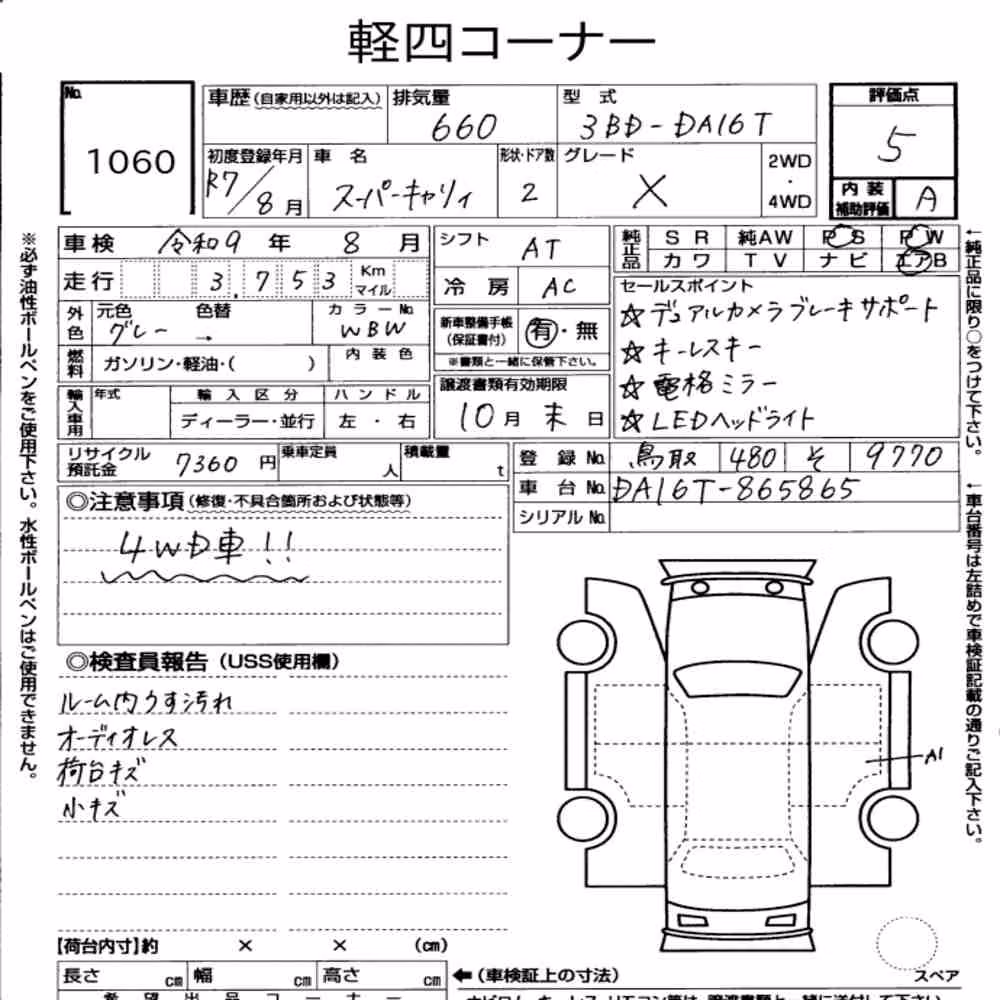 軽四コーナー
No.
1060
車歴(自家用以外は記入)
排気量
660
型 式
3BD-DA16T
評価点
5
内装補助評価
A
初度登録年月
R7/8月
車 名
スーパーキャリィ
形状・ドア数
2
グレード
X
2WD
・
4WD
車検 令和9年 8月
シフト AT
純正品
SR 純AW PS PW
カワ TV ナビ エアB
走行 3,753 Km マイル
冷房 AC
セールスポイント
☆デュアルカメラブレーキサポート
☆キーレスキー
☆電格ミラー
☆LEDヘッドライト
外色
元色
グレー →
色替
カラーNo.
WBW
新車整備手帳
(保証書付)
有・無
※書類と一緒に保管下さい。
燃料
ガソリン・軽油・( )
内装色
譲渡書類有効期限
10月 末 日
輸入車用
年式
輸入区分
ディーラー・並行
ハンドル
左・右
リサイクル預託金 7360 円
乗車定員 人
積載量 t
登録No. 鳥取 480 そ 9770
車台No. DA16T-865865
シリアルNo.
◎注意事項(修復・不具合箇所および状態等)
4WD車!!
◎検査員報告(USS使用欄)
ルーム内うす汚れ
オーディオレス
荷台キズ
小キズ
A1
【荷台内寸】約 × × (cm)
長さ cm 幅 cm 高さ cm
←(車検証上の寸法)
スペア
希望出品コーナー
※必ず油性ボールペンをご使用下さい。水性ボールペンはご使用できません。
←純正品に限り○をつけて下さい。
←車台番号は左詰めで車検証記載の通りご記入下さい。